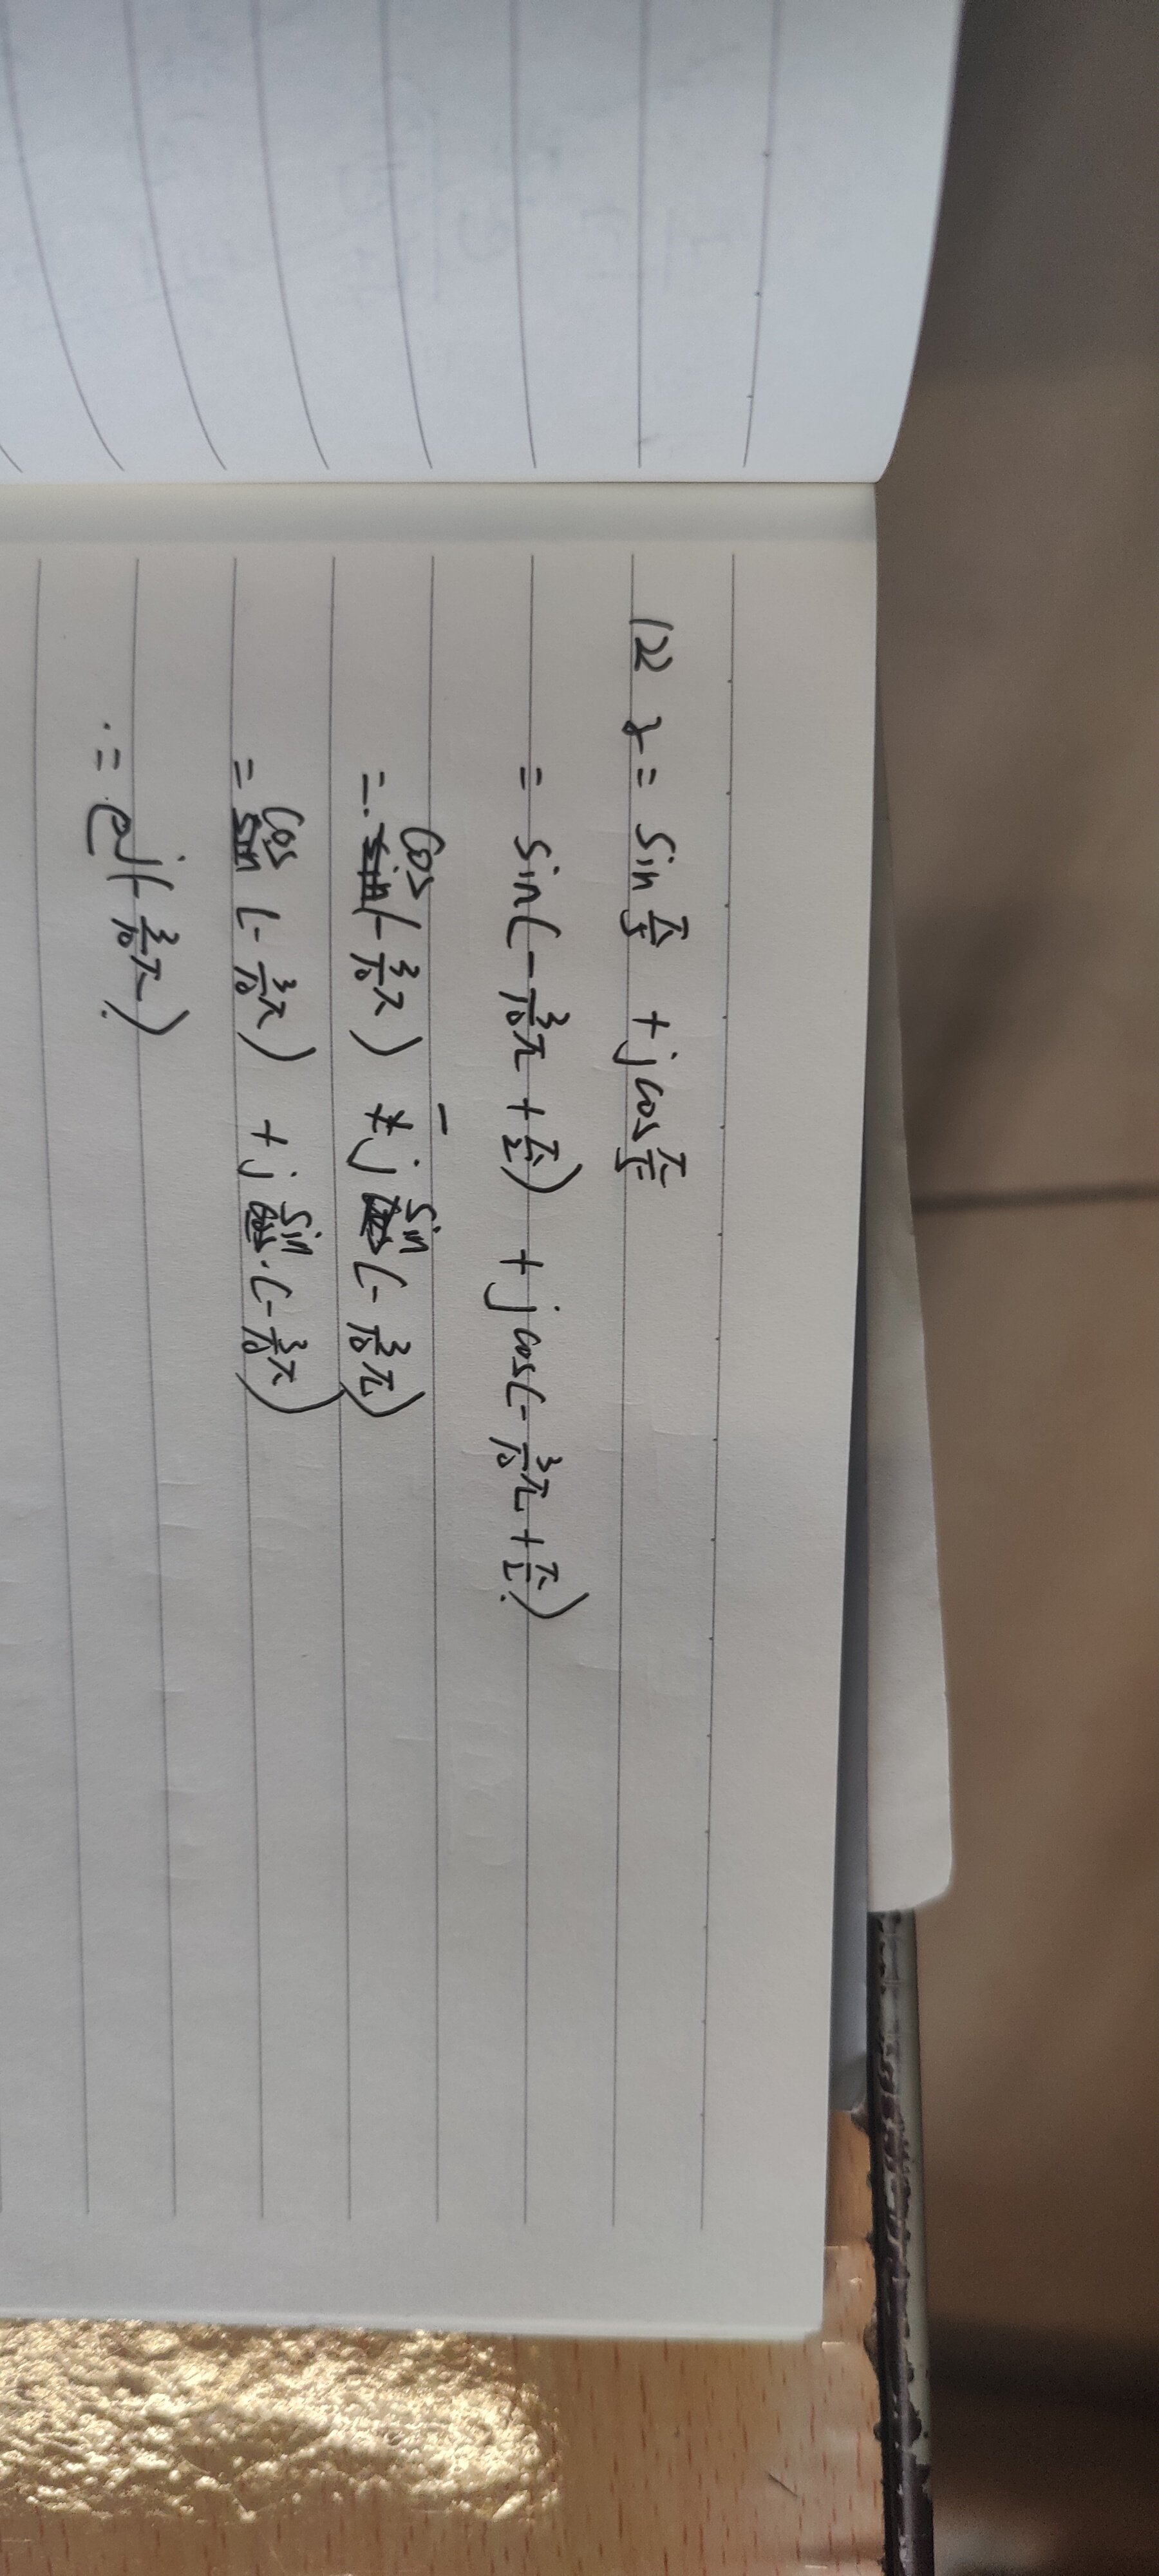 (2) z = sin π/5 + j cos π/5
= sin(- 3/10 π + π/2) + j cos(- 3/10 π + π/2)
= cos(- 3/10 π) - j sin(- 3/10 π)
= cos(- 3/10 π) + j sin(- 3/10 π)
= e^j(- 3/10 π)